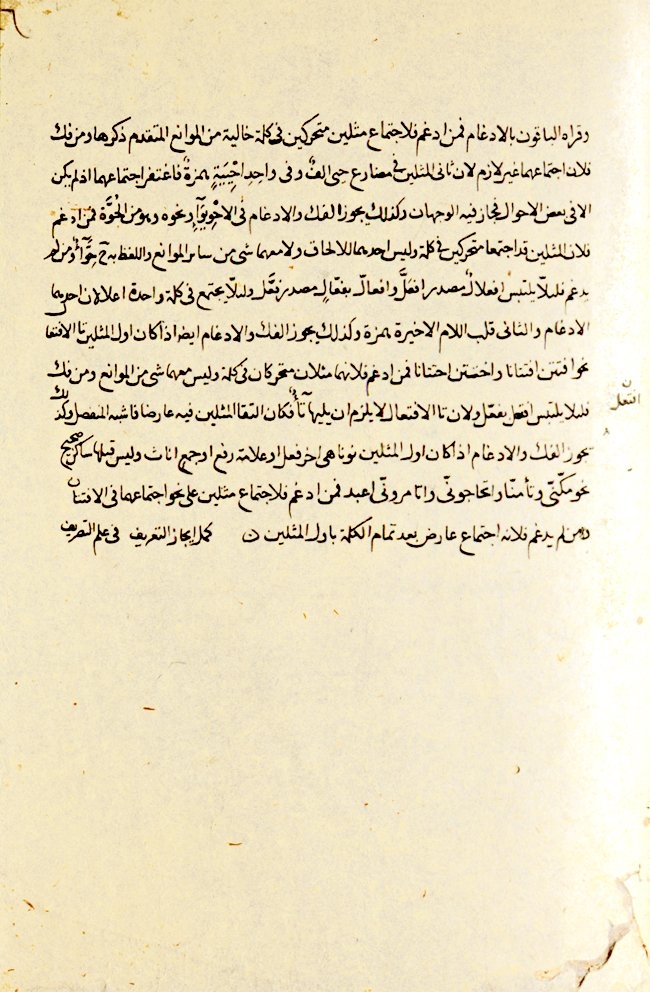 وقراه الباقون بالادغام فمن ادغم فلاجتماع مثلين متحركين فى كلمة خالية من الموانع المتقدم ذكرها ومن فك
فلان اجتماعهما غير لازم لان ثانى المثلين فى مضارع حيى الف وفى واحد احيية همزة فاغتفر اجتماعهما اذ لم يكن
الا فى بعض الاحوال فجاز فيه الوجهان وكذلك يجوز الفك والادغام فى الاحويواء ونحوه وهو من الحوة فمن ادغم
فلان المثلين قد اجتمعا متحركين فى كلمة وليس احدهما للالحاق ولا معهما شى من ساير الموانع واللفظ به حواء ومن لم
يدغم فلئلا يلتبس افعلال مصدر افعل وافعال بفعال مصدر فعل ولئلا يجتمع فى كلمة واحدة اعلالان احدهما
الادغام والثانى قلب اللام الاخيرة همزة وكذلك يجوز الفك والادغام ايضا اذا كان اول المثلين تا الافتعال
نحو اقتتن افتتانا واختتن اختتانا فمن ادغم فلانهما مثلان متحركان فى كلمة وليس معهما شى من الموانع ومن فك
فلئلا يلتبس افتعل بفعل ولان تا الافتعال لا يلزم ان يليها تاء فكان التقا المثلين فيه عارضا فاشبه المنفصل وكذلك
يجوز الفك والادغام اذا كان اول المثلين نونا هى اخر فعل او علامة رفع او جمع اناث وليس قبلها ساكن صحيح
نحو مكنى وتأمنا واتحاجونى واتامرونى اعبد فمن ادغم فلاجتماع مثلين على نحو اجتماعهما فى الافتتان
ومن لم يدغم فلانه اجتماع عارض بعد تمام الكلمة باول المثلين ن كمل ايجاز التعريف فى علم التصريف